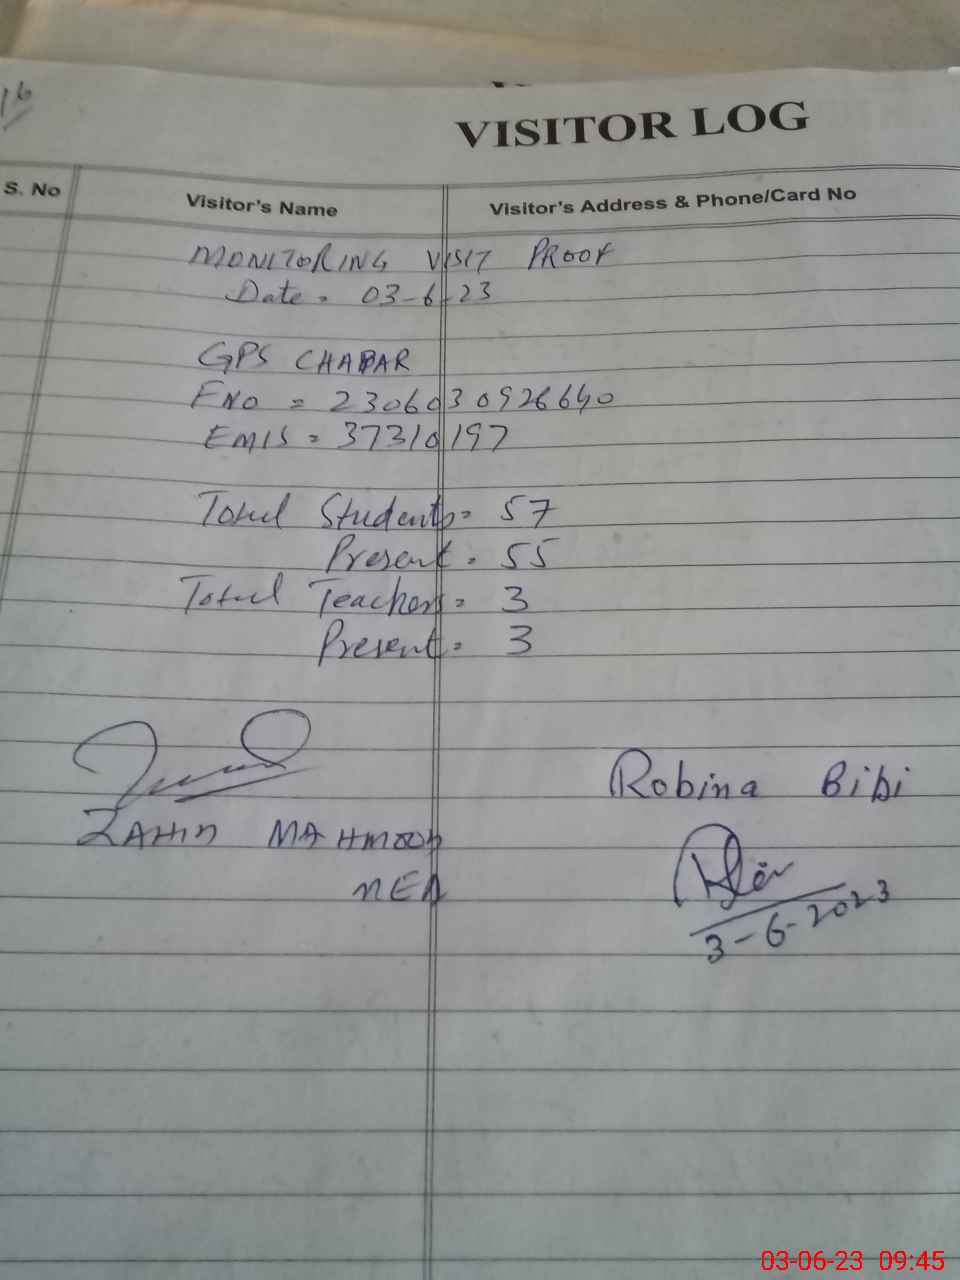 16
VISITOR LOG
S. No
Visitor's Name
Visitor's Address & Phone/Card No
MONITORING VISIT PROOF
Date = 03-6-23
GPS CHAPAR
FNO = 2306030926640
EMIS = 37310197
Total Students = 57
Present = 55
Total Teachers = 3
Present = 3
ZAHID MAHMOOD
MEA
Robina Bibi
3-6-2023
03-06-23 09:45